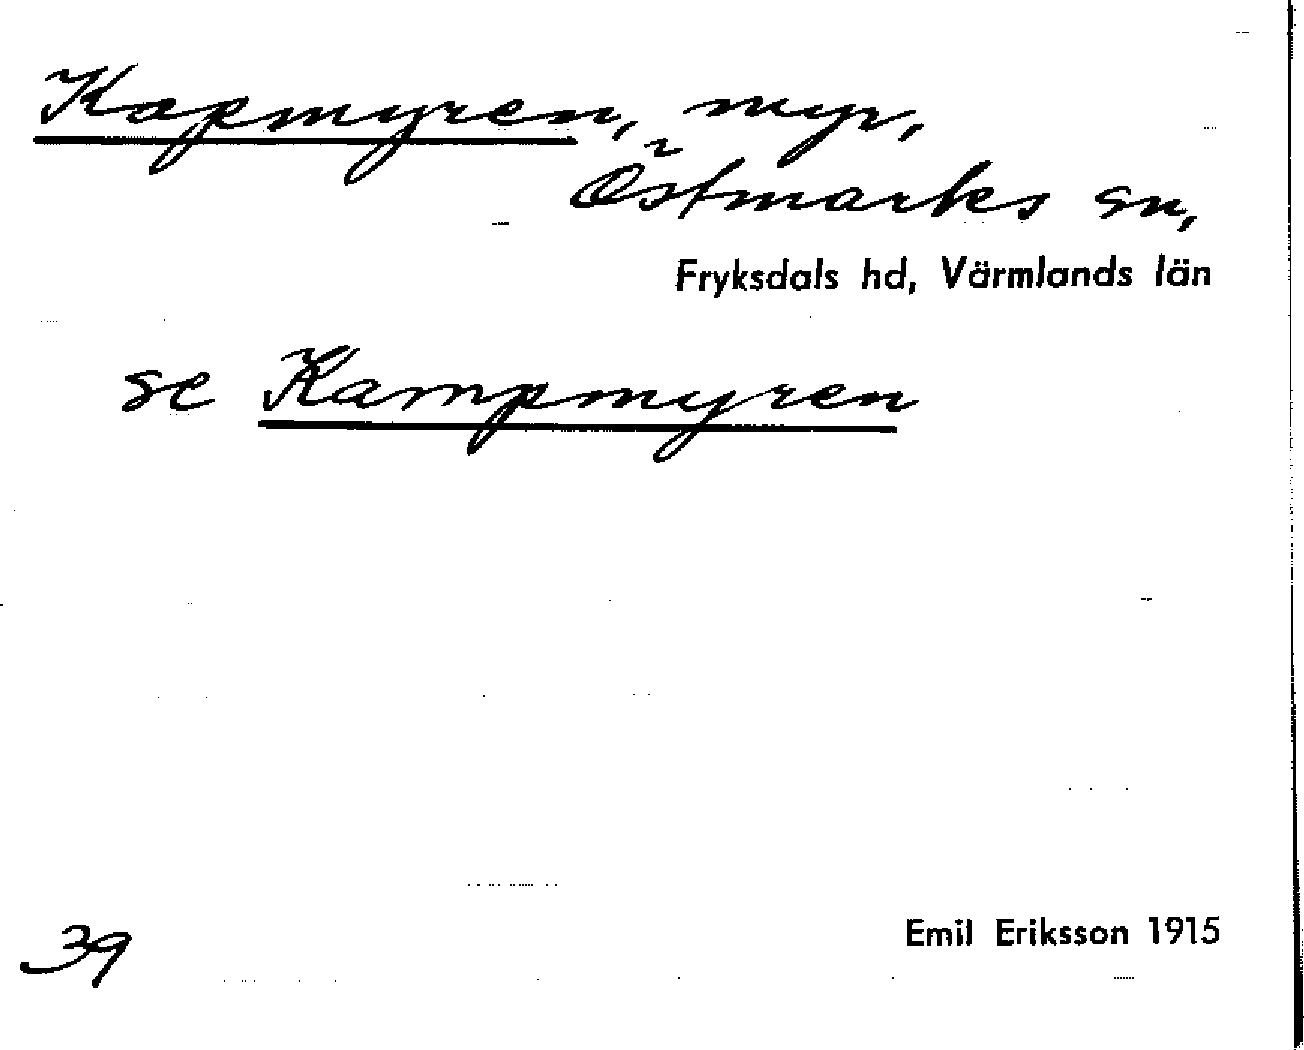 Kapmyren, myr,
Östmarks sn,
Fryksdals hd, Värmlands län
se Kampmyren
39
Emil Eriksson 1915